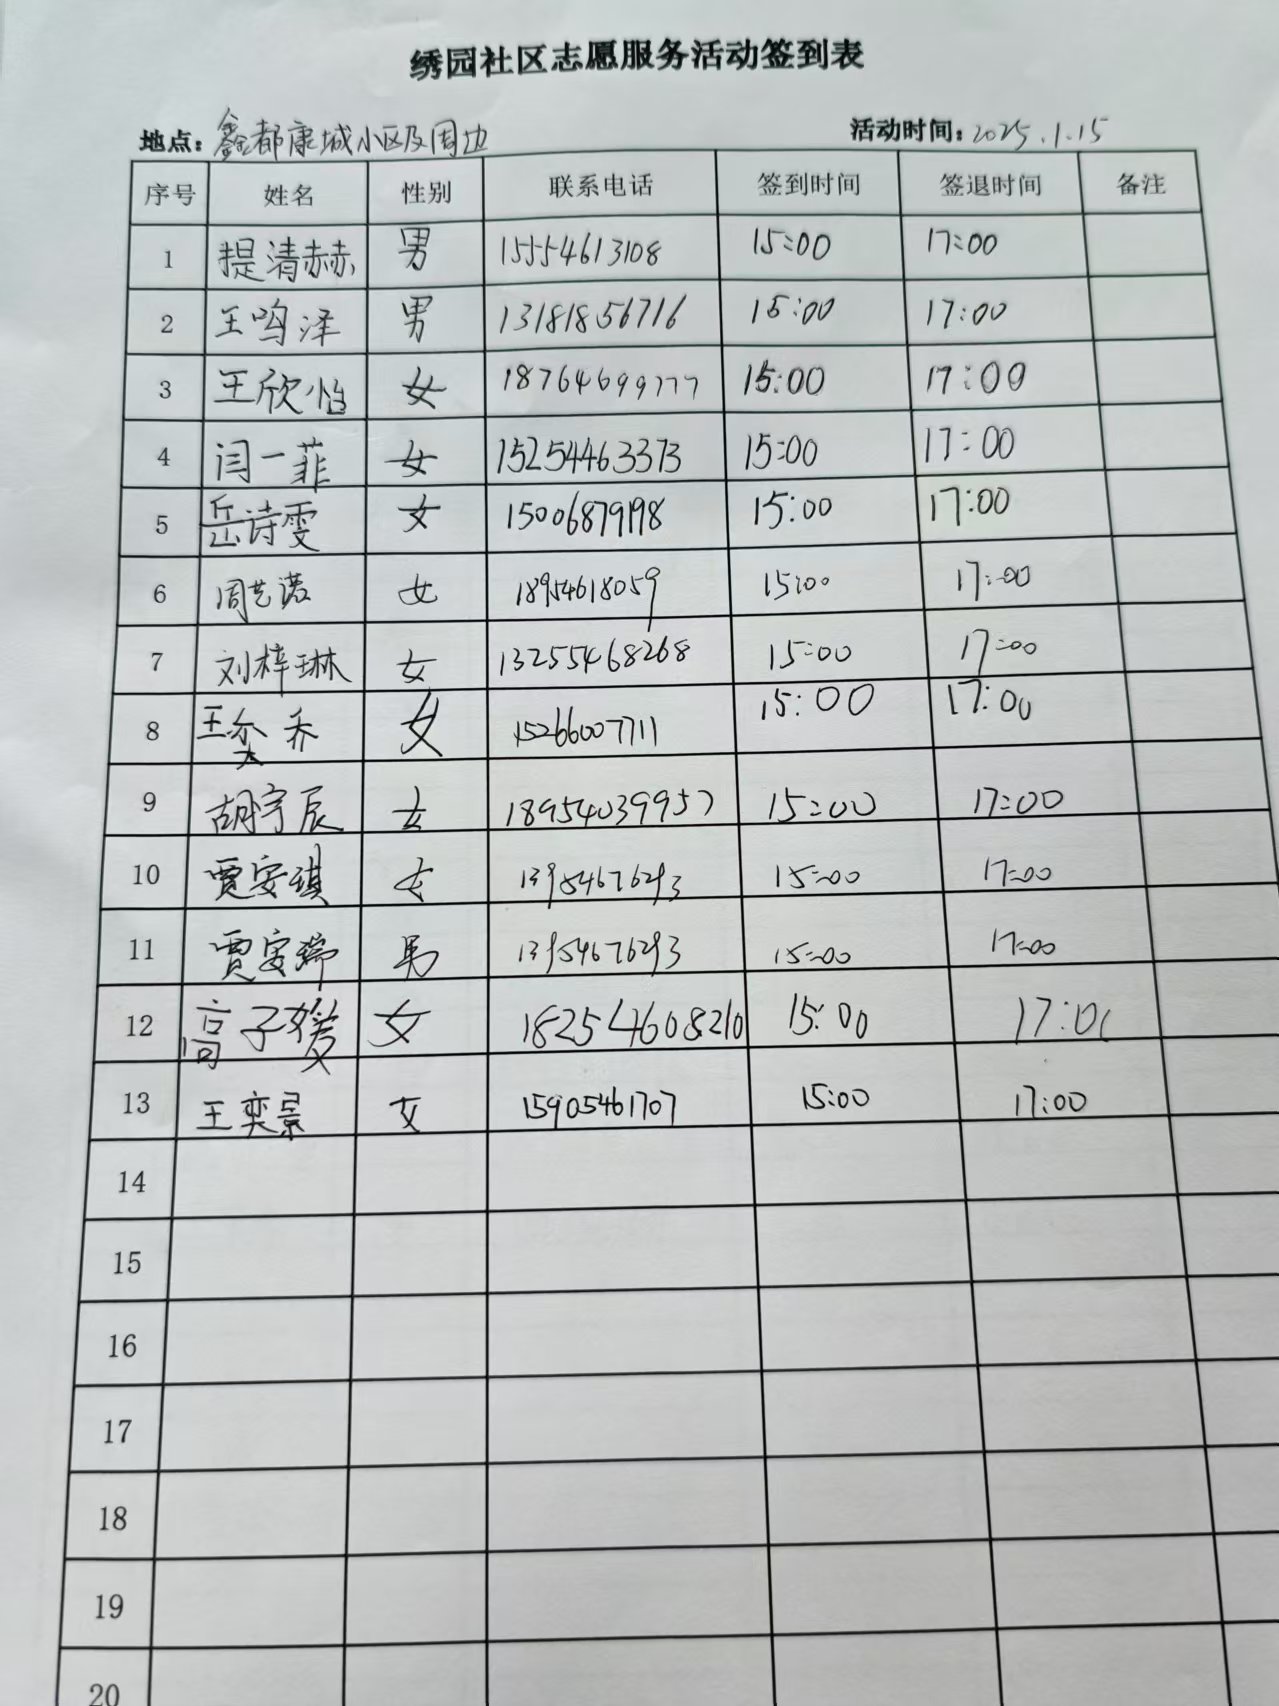 绣园社区志愿服务活动签到表
地点：鑫都康城小区及周边 活动时间：2025.1.15
序号 姓名 性别 联系电话 签到时间 签退时间 备注
1 提清赫 男 15554613108 15:00 17:00
2 王鸣泽 男 13181856716 15:00 17:00
3 王欣怡 女 18764699777 15:00 17:00
4 闫一菲 女 15254463373 15:00 17:00
5 岳诗雯 女 15006879198 15:00 17:00
6 周艺诺 女 18954618059 15:00 17:00
7 刘梓琳 女 13255468268 15:00 17:00
8 王 乔 女 15266007711 15:00 17:00
9 胡宇辰 女 18954039957 15:00 17:00
10 贾安琪 女 13954676293 15:00 17:00
11 贾安瑞 男 13954676293 15:00 17:00
12 高子媛 女 18254608210 15:00 17:00
13 王奕景 女 15905461707 15:00 17:00
14
15
16
17
18
19
20